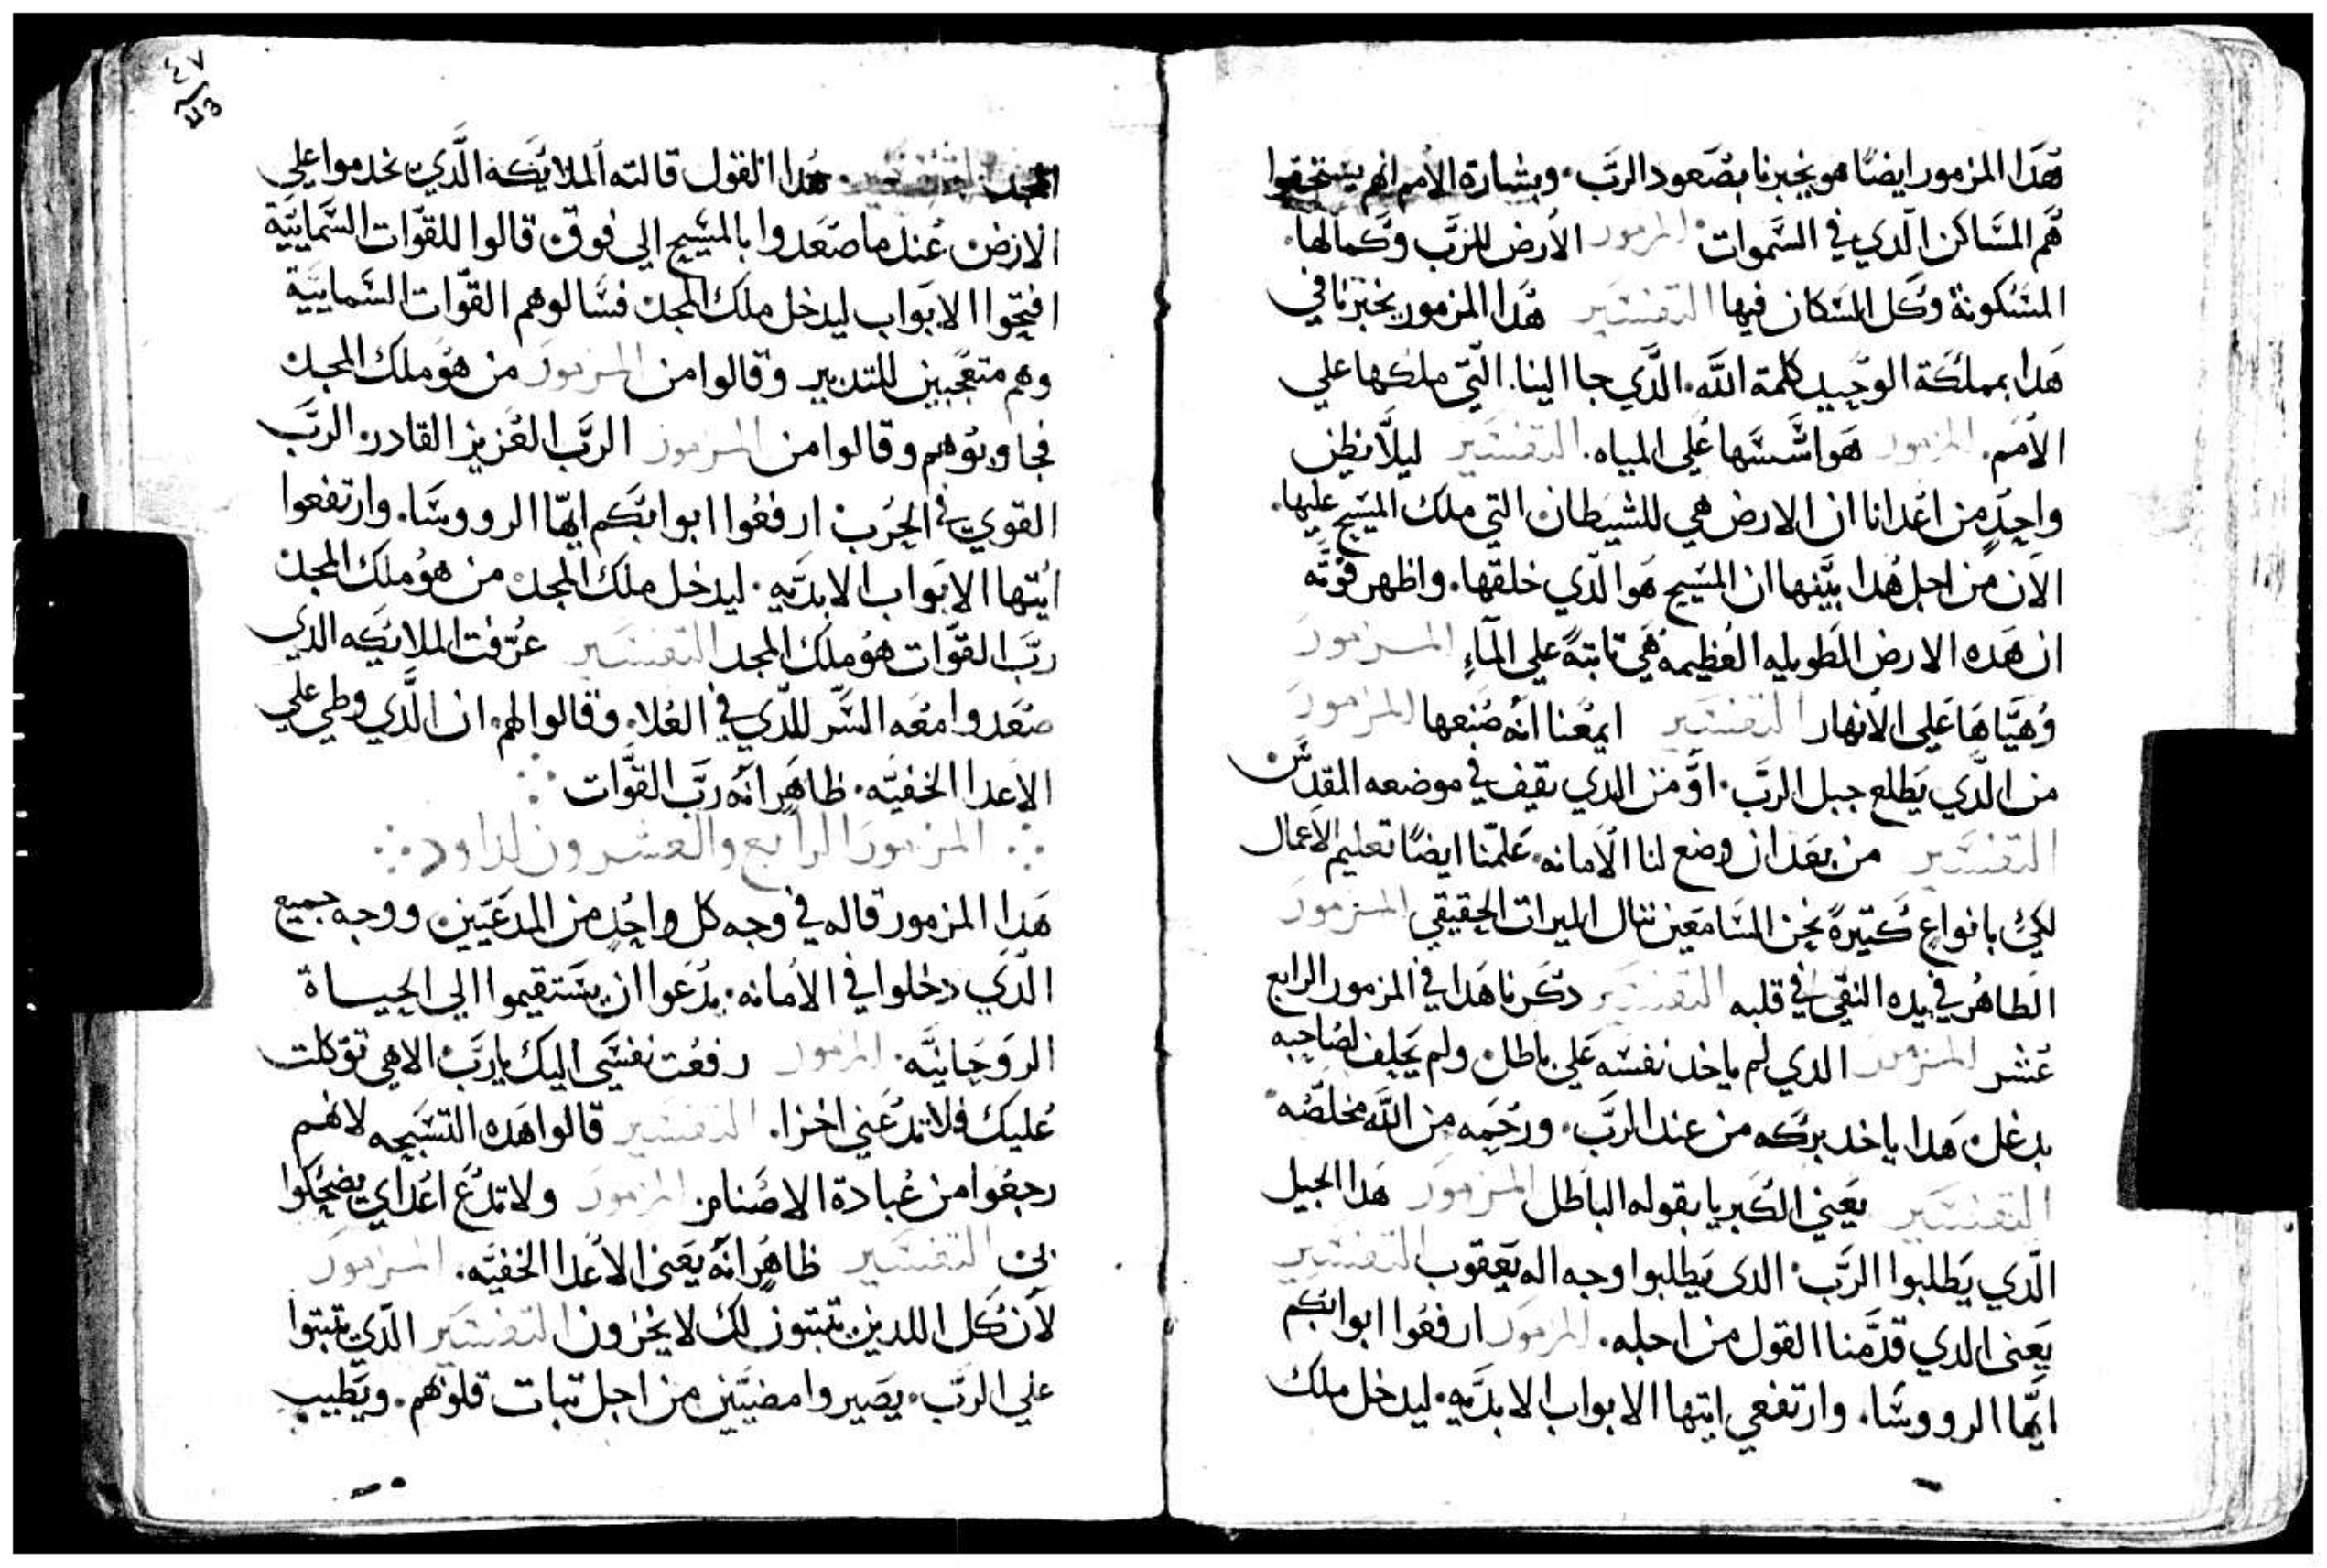 هذا المزمور ايضًا هو يخبرنا بصعود الربّ. وبشارة الامم انهم يستحقوا
هم المساكن الّدي في السّموات المزمور الأرض للربّ وكمالها.
المسكونة وكل السكان فيها التفسير هذا المزمور يخبرنا في
هدا بمملكة الوحيد كلمة الله. الّدي جا الينا. التي ملكها علي
الأمم. المزمور هو اسّسها علي المياه. التفسير ليلّا يظن
واحدٍ من اعدانا ان الارض هي للشيطان التي ملك المسيح عليها.
الآن من اجل هدا بيّنها ان المسيح هو الّدي خلقها. واظهر قوّته
ان هده الارض الطويله العظيمه هي تابتةً علي المآءِ المزمور
وهيّاها علي الأنهار التفسير ايمعنا انه صنعها المزمور
من الّدي يطلع جبل الربّ. اوّ من الدي يقف في موضعه المقدّس
التفسير من بعد ان وضع لنا الأمانه. علّمنا ايضًا تعليم الاعمال
لكي بانواعٍ كتيرةً نحن السّامعين ننال الميرات الحقيقي المزمور
الطاهر في يده النقي في قلبه التفسير دكرنا هدا في المزمور الرابع
عشر المزمور الدي لم ياخد نفسه علي باطل ولم يحلف لصاحبه
بدغل هدا ياخد بركه من عند الربّ. ورحمه من الله مخلصه
التفسير يعني الكبريا بقوله الباطل المزمور هدا الجيل
الّدي يطلبوا الربّ الدي يطلبوا وجه اله يعقوب التفسير
يعني الدي قدّمنا القول من اجله. المزمور ارفعوا ابوابكم
ايّها الرووسّا. وارتفعي ايتها الابواب الابديّه. ليدخل ملك
٤٧
المجد التفسير هدا القول قالته الملايكه الّدي خدموا علي
الارض عند ما صعدوا بالمسيح الي فوق قالوا للقوّات السّماييّة
افتحوا الابواب ليدخل ملك المجد فسالوهم القوّات السّماييّة
وهم متعجبين للتدبير وقالوا من المزمور من هو ملك المجد
فجاوبوهم وقالوا من المزمور الربّ العزيز القادر الربّ
القوي في الحرب ارفعوا ابوابكم ايّها الرووسّا. وارتفعوا
ايّتها الابواب الابديّه. ليدخل ملك المجد من هو ملك المجد
ربّ القوّات هو ملك المجد التفسير عرّفت الملايكه الدي
صعدوا معه السّر للّدي في العلاء وقالوا لهم ان الّدي وطي علي
الاعدا الخفيّه. ظاهرٍ انّه ربّ القوّات
المزمور الرابع والعشرون لداود
هدا المزمور قاله في وجه كل واحدٍ من المدعيّين ووجه جميع
الّدي دخلوا في الامانه. يدعوا ان يستقيموا الي الحيـاة
الروحانيّه. المزمور رفعت نفسي اليك يا ربّ الاهي توكلت
عليك فلا تدعني اخزا. التفسير قالوا هده التسّبحه لانهم
رجعوا من عبادة الاصنام المزمور ولا تدع اعداي يضحكوا
بي التفسير ظاهرٍ انّه يعني الاعدا الخفيّه. المزمور
لان كل اللدين تبتون لك لا يخزون التفسير الّدي تبتوا
علي الربّ. يصيروا مضيّين من اجل تبات قلوبهم. ويطيب